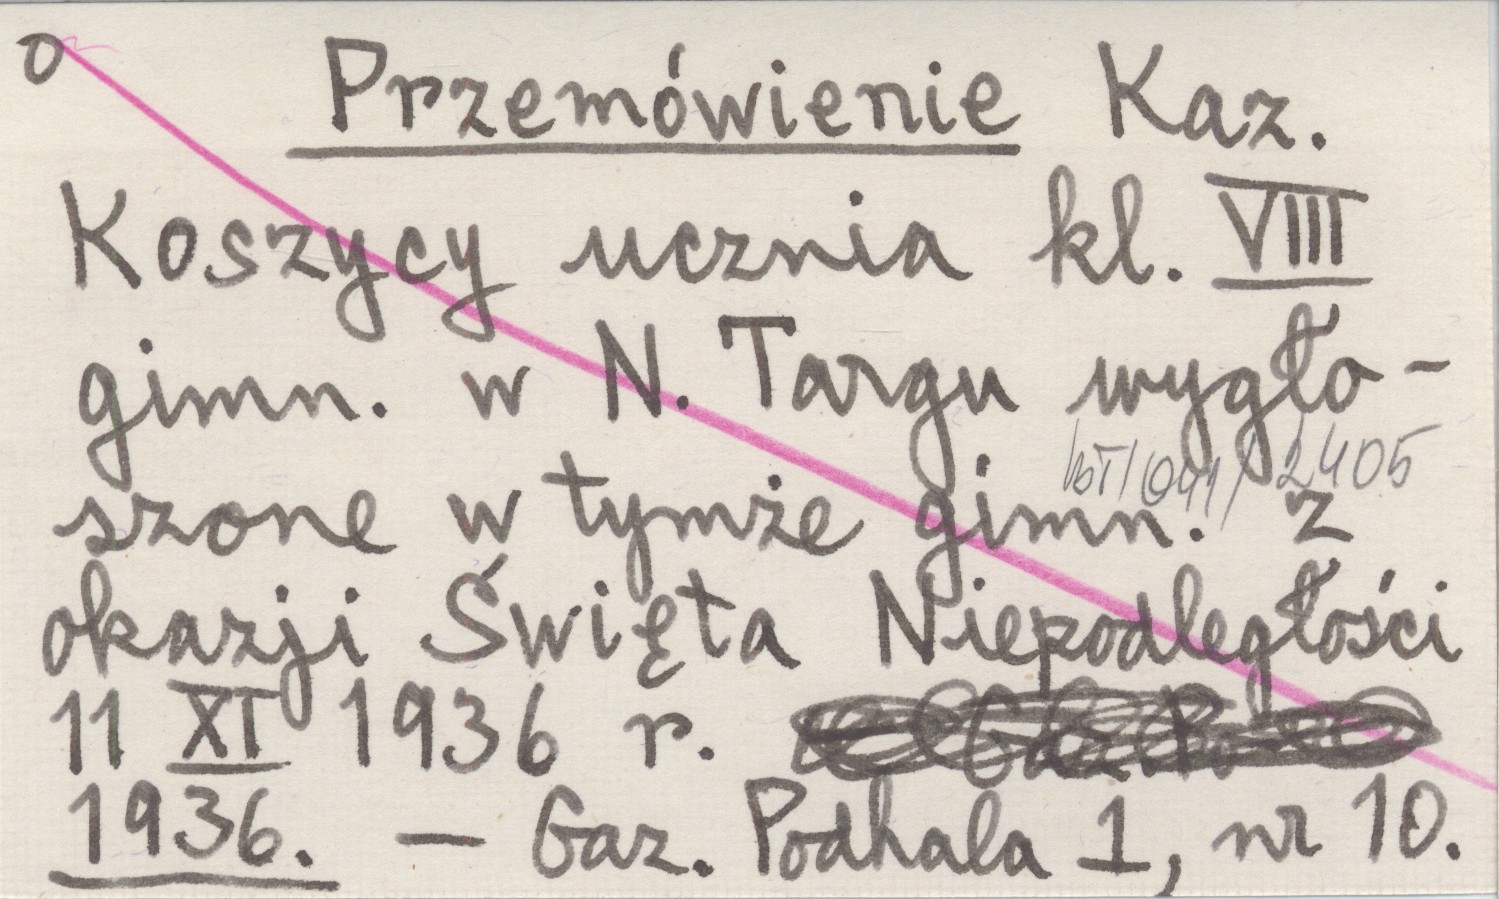 o Przemówienie Kaz.
Koszycy ucznia kl. VIII
gimn. w N. Targu wygło-
szone w tymże gimn. z
2405
okazji Święta Niepodległości
11 XI 1936 r.
1936. — Gaz. Podhala 1, nr 10.